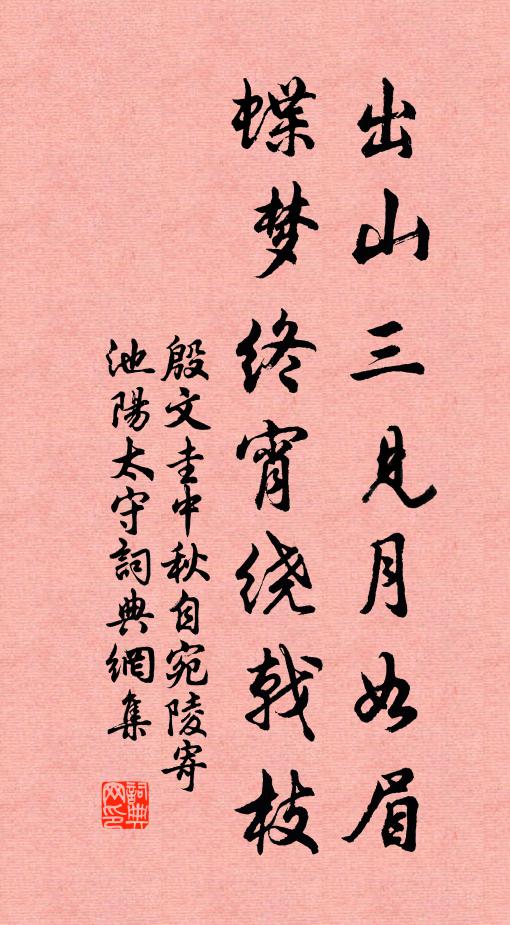 出山三见月如眉
蝶梦终宵绕戟枝
殷文圭中秋自宛陵寄
池陽太守詞典網集
詞典网印